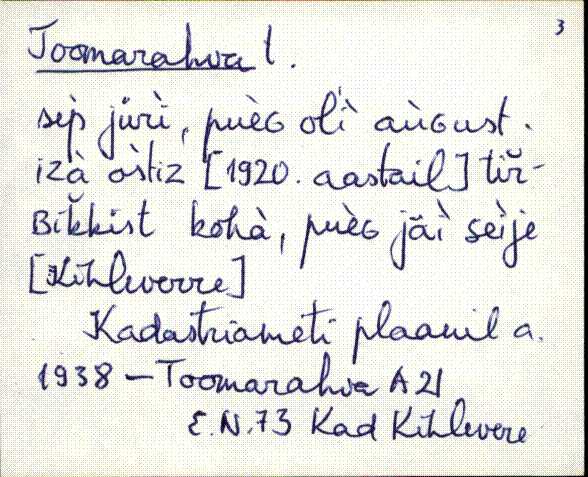 3
Toomarahva t.
sep̀ jǖrì, puèɢ olì aùɢust.
izà òstiz [1920. aastail] tīr̆-
Bik̆kist kohà, puèɢ jäì seìje
[Kihlevere]
Kadastriameti plaanil a.
1938 – Toomarahva A21
E.N.73 Kad Kihlevere